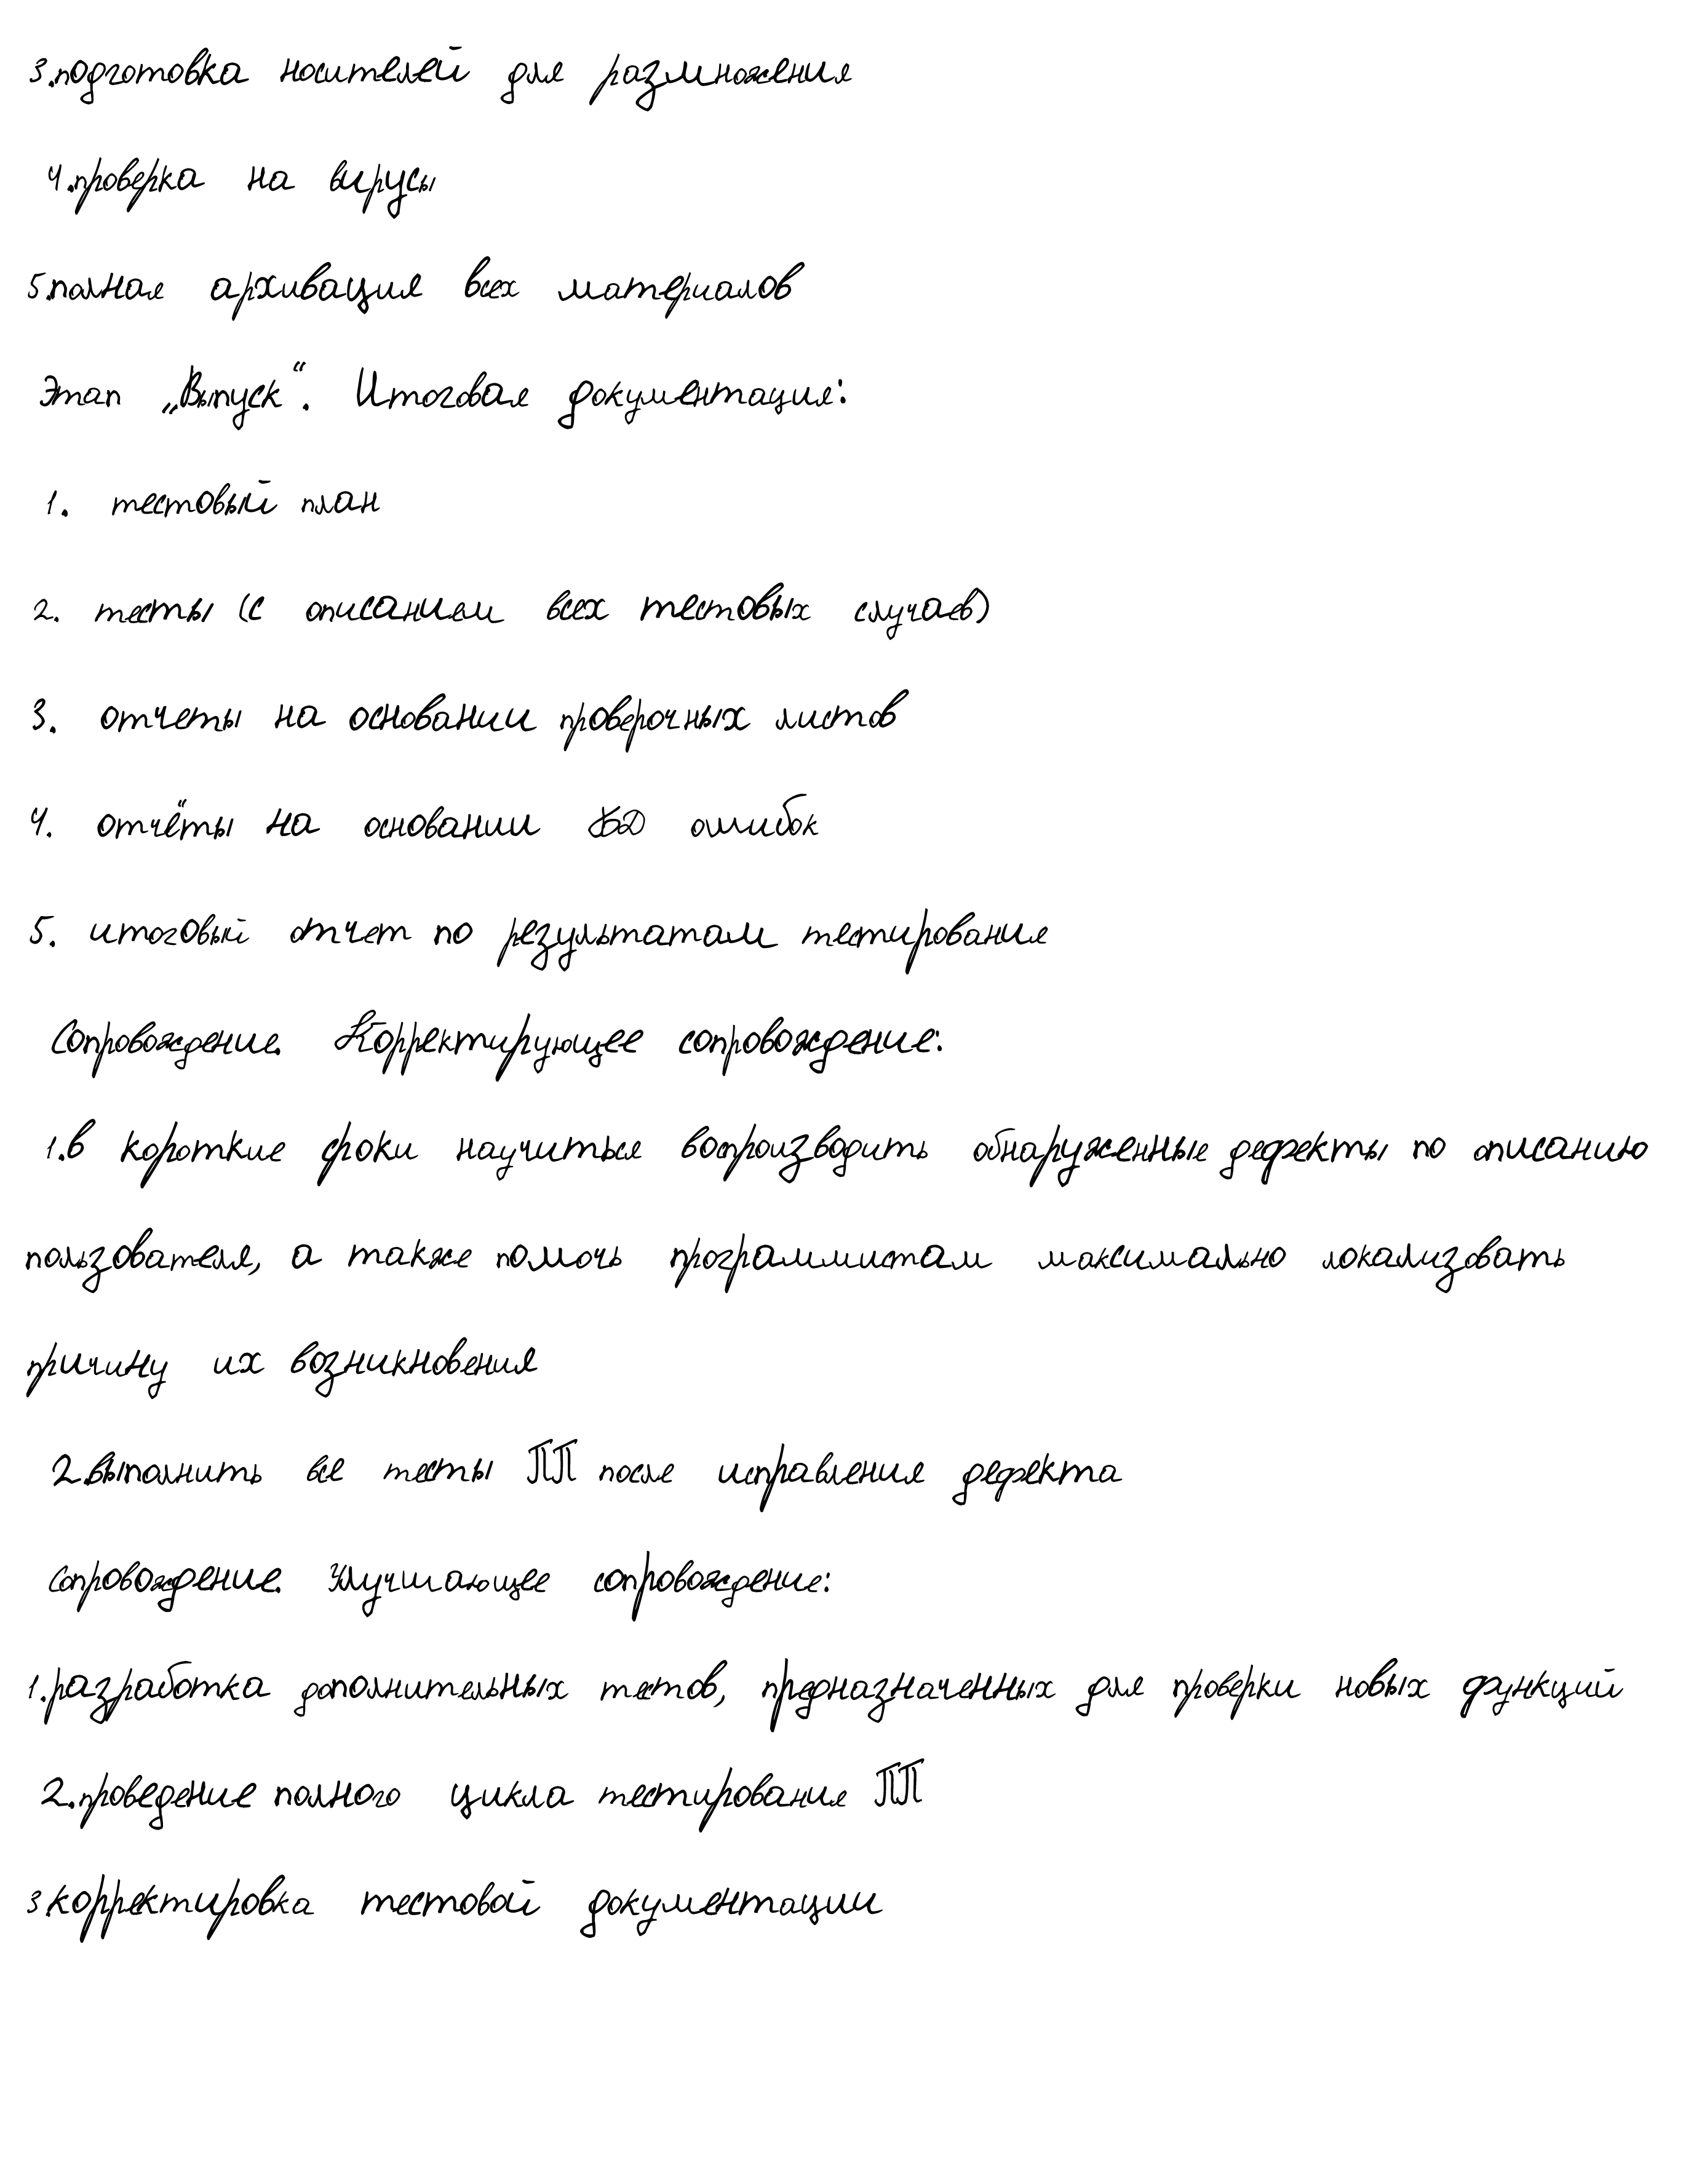 3.подготовка носителей для размножения
4.проверка на вирусы
5.полная архивация всех материалов
Этап „Выпуск“. Итоговая документация:
1. тестовый план
2. тесты (с описанием всех тестовых случаев)
3. отчеты на основании проверочных листов
4. отчёты на основании БД ошибок
5. итоговый отчет по результатам тестирования
Сопровождение. Корректирующее сопровождение:
1.в короткие сроки научиться воспроизводить обнаруженные дефекты по описанию
пользователя, а также помочь программистам максимально локализовать
причину их возникновения
2.выполнить все тесты ПП после исправления дефекта
Сопровождение. Улучшающее сопровождение:
1.разработка дополнительных тестов, предназначенных для проверки новых функций
2.проведение полного цикла тестирования ПП
3.корректировка тестовой документации